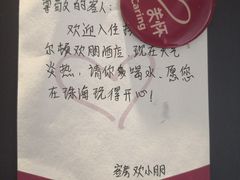 尊敬的客人：
欢迎入住希
尔顿欢朋酒店，现在天气
炎热，请你多喝水，愿您
在珠海玩得开心！
客房欢小朋
关怀
Caring